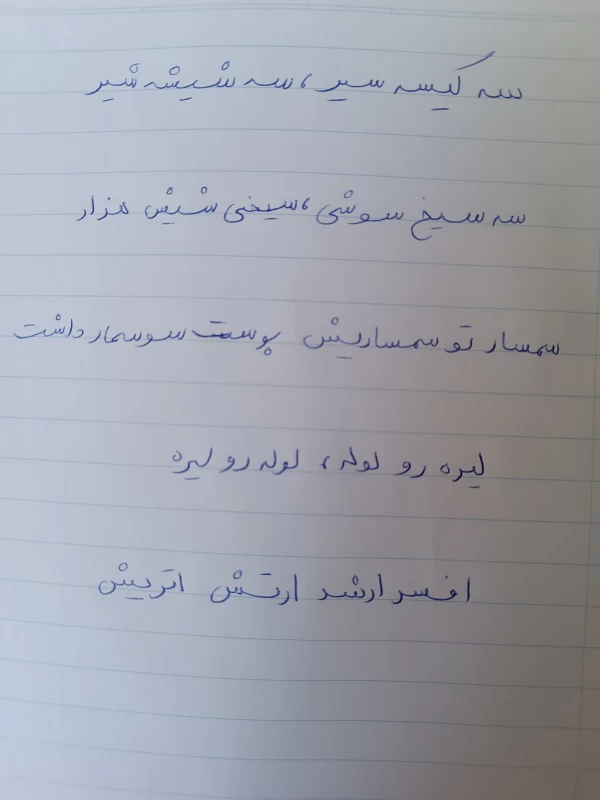 سه کیسه سیر، سه شیشه شیر
سه سیخ سوشی، سیخی شیش هزار
سمسار تو سمساریش پوست سوسمار داشت
لیره رو لوله، لوله رو لیره
افسر ارشد ارتش اتریش